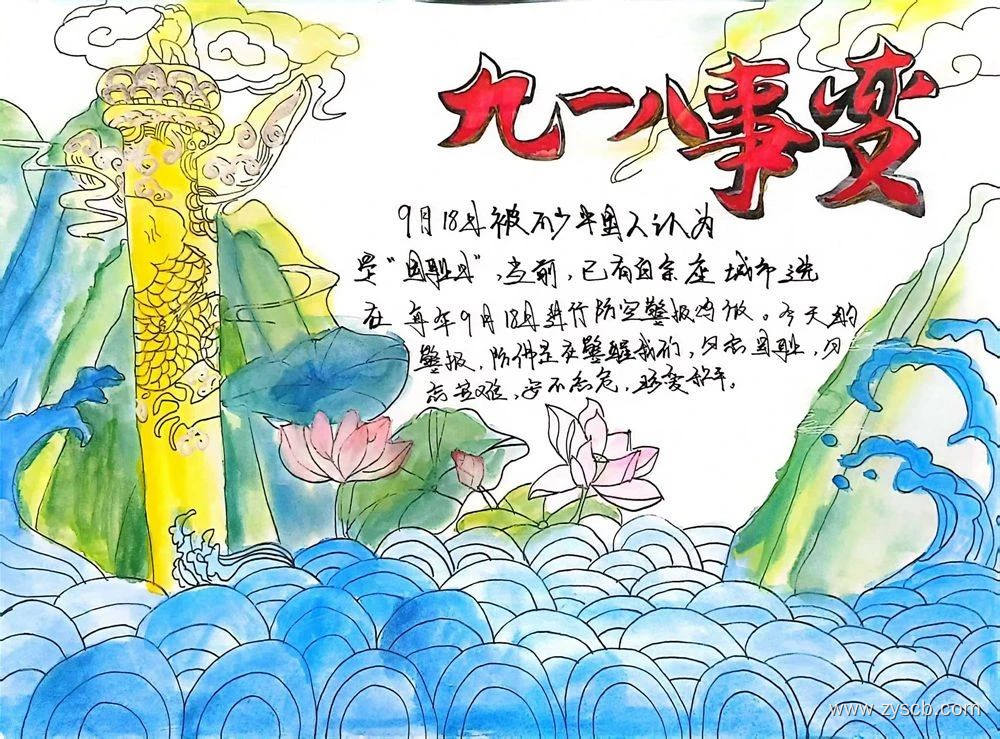 九一八事变
9月18日被不少中国人认为
是“国耻日”,当前,已有百余座城市选
在每年9月18日进行防空警报鸣放。今天的
警报,仿佛是在警醒我们,勿忘国耻,勿
忘苦难,安不忘危,珍爱和平。
www.zyscb.com